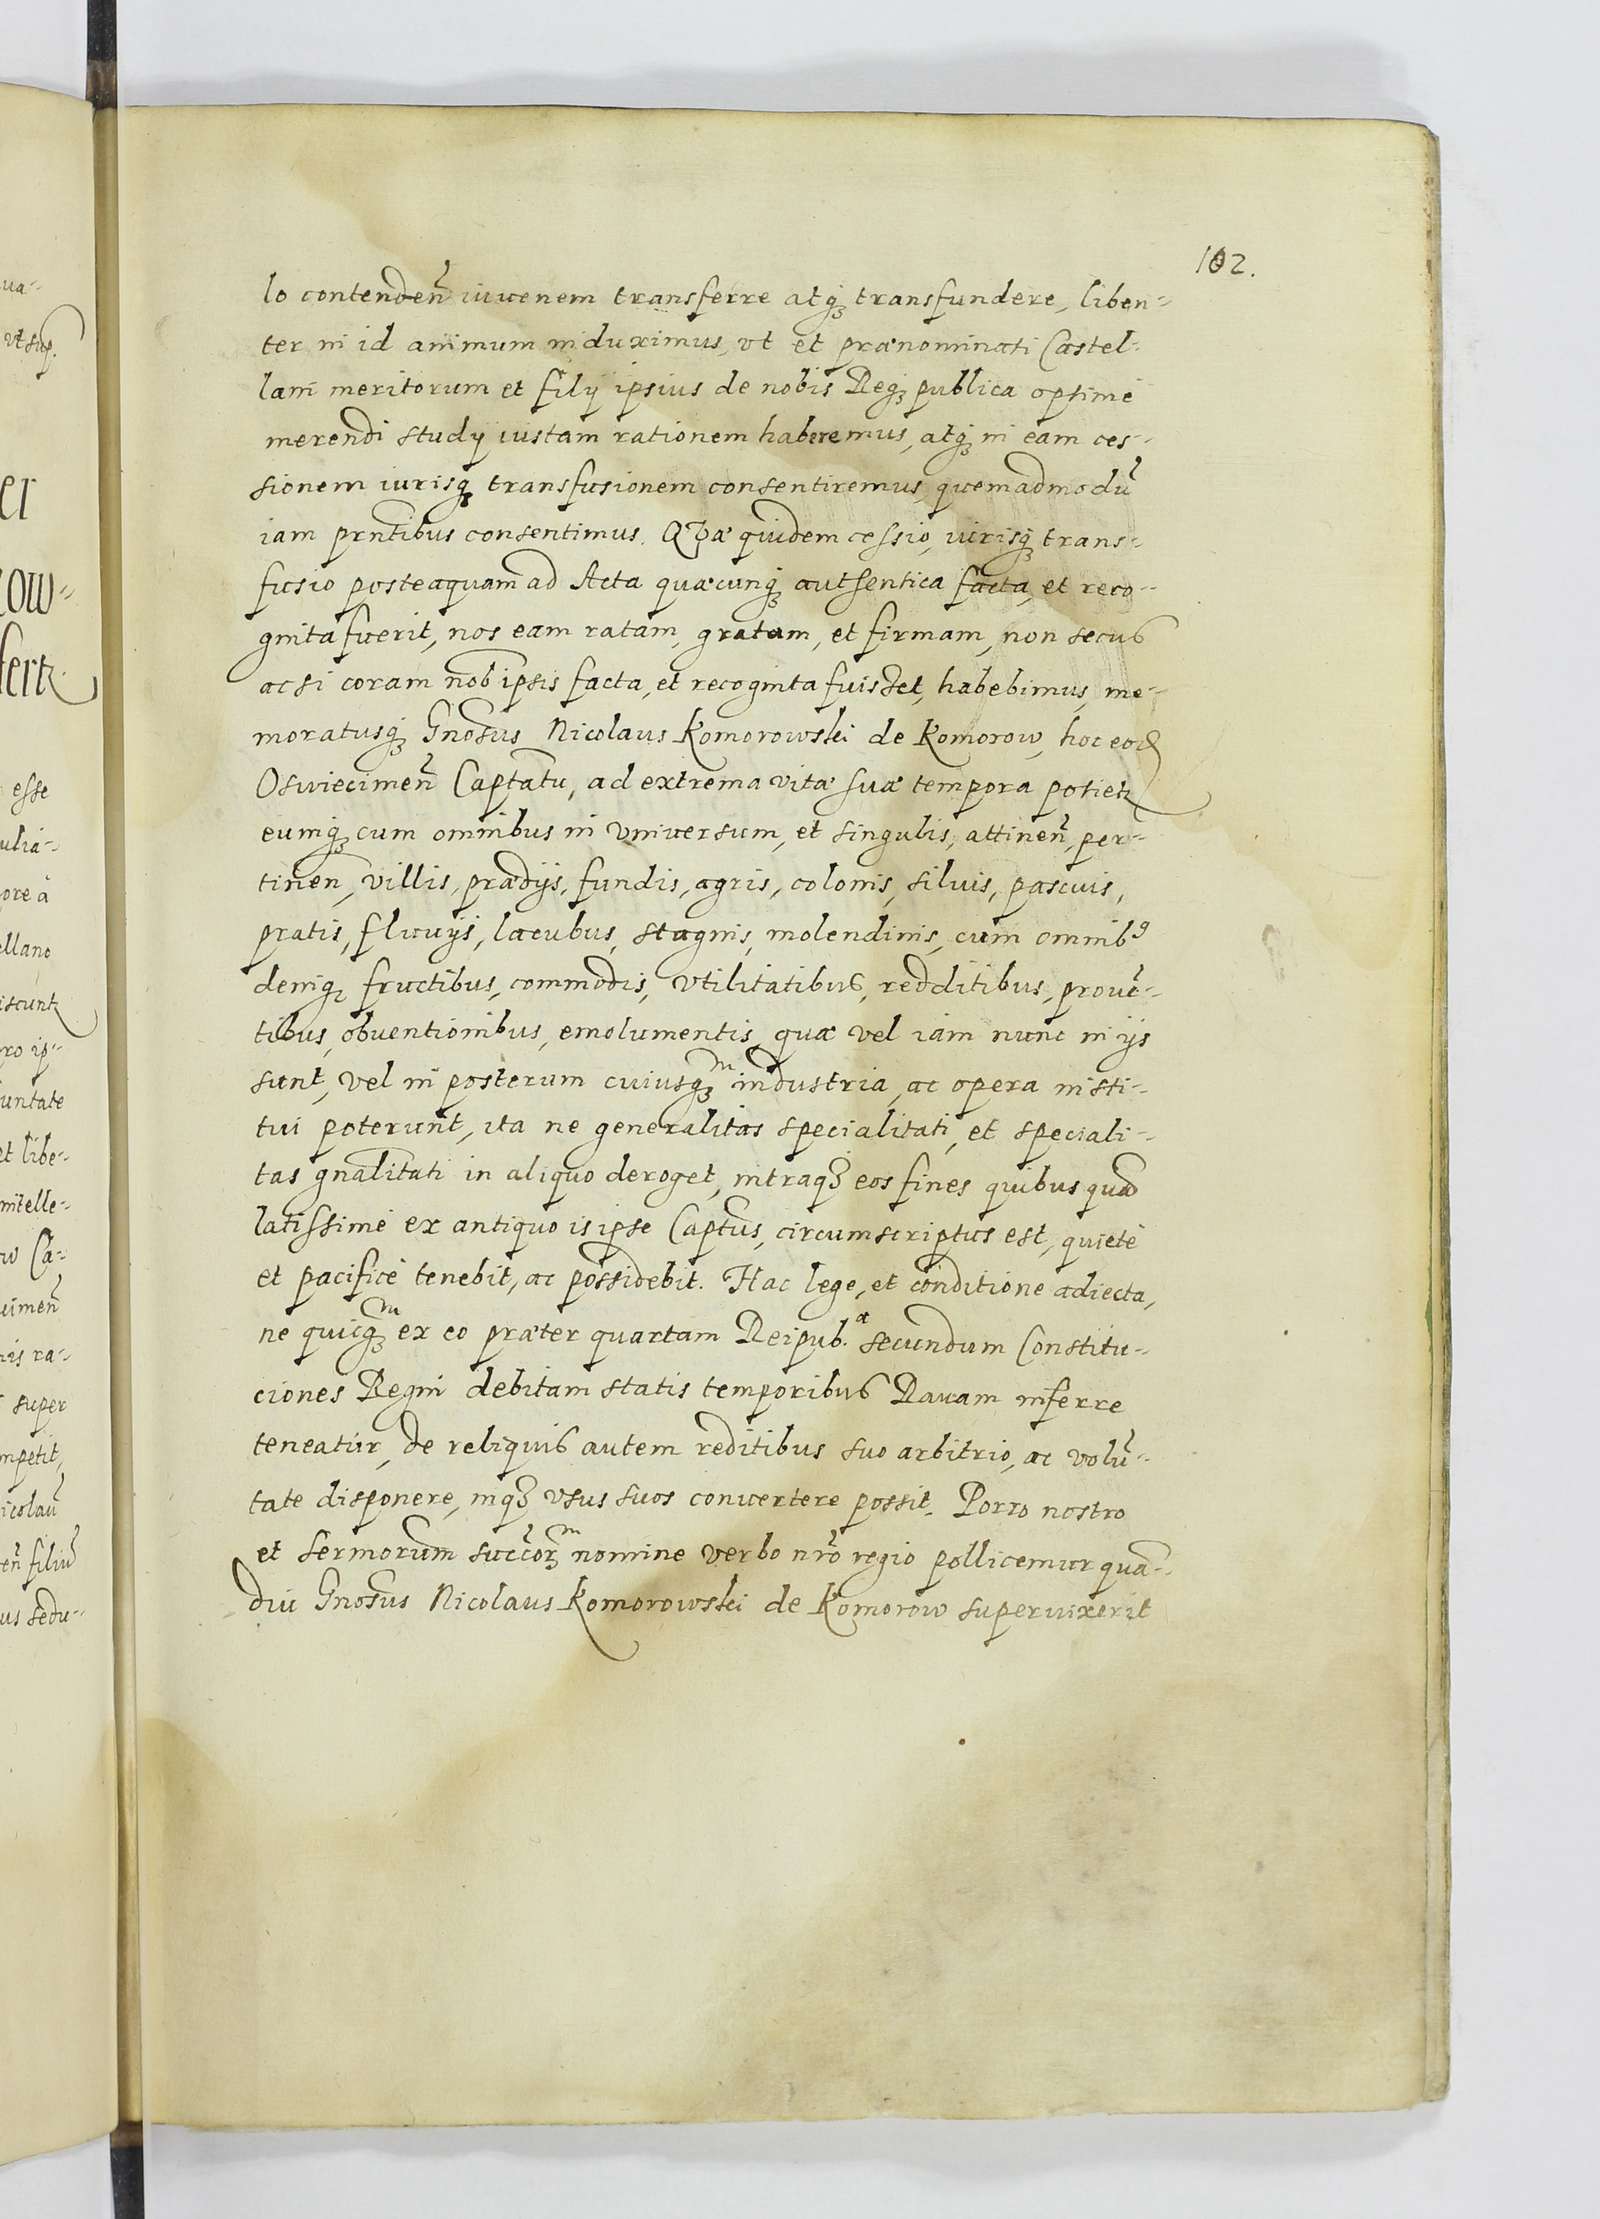 102.
lo contendeñ iuuenem transferre atq₃ transfundere, liben-
ter in id animum induximus, vt et prænominati Castel-
lani meritorum et filij ipsius de nobis Req₃ publica optimè
merendi studij iustam rationem haberemus, atq₃ in eam ces-
sionem iurisq₃ transfusionem consentiremus, quemadmodū
iam prñtibus consentimus. Quæ quidem cessio, iurisq₃ trans-
fusio posteaquam ad Acta quæcunq₃ authentica facta, et reco-
gnita fuerit, nos eam ratam, gratam, et firmam, non secus
acsi coram nob ipsis facta, et recognita fuisset, habebimus, me-
moratusq₃ Gnosus Nicolaus Komorowski de Komorow, hoc eod
Oswiecimeñ Captatu, ad extrema vitæ suæ tempora potietr
eumq₃ cum omnibus in vniuersum, et singulis, attineñ, per-
tineñ, villis, prædijs, fundis, agris, colonis, siluis, pascuis,
pratis, fluuijs, lacubus, stagnis, molendinis, cum omnib⁹
deniq₃ fructibus, commodis, vtilitatibus, redditibus, prouē-
tibus, obuentionibus, emolumentis, quæ vel iam nunc in ijs
sunt, vel in posterum cuiusq₃ᵐ industria, ac opera insti-
tui poterunt, ita ne generalitas specialitati, et speciali-
tas gnalitati in aliquo deroget, intraq₃ eos fines quibus quàd
latissimè ex antiquo is ipse Captus, circumscriptus est, quietè
et pacificè tenebit, ac possidebit. Hac lege, et conditione adiecta,
ne quicq₃ᵐ ex eo præter quartam Reipub.æ secundum Constitu-
ciones Regni debitam statis temporibus Rauam inferre
teneatur, de reliquis autem reditibus suo arbitrio, ac volū-
tate disponere, inq₃ vsus suos conuertere possit. Porro nostro
et sermorum succorₓᵐ nomine verbo nrõ regio pollicemur quā-
diu Gnosus Nicolaus Komorowski de Komorow superuixerit
ua-
vt sup.
er
cow-
fertr
esse
ulia-
ore à
ellano
iscuntr
ro ip-
untate
et libe-
intelle-
w Ca-
cimeñ
nis ra-
super
mpetit,
icolaū
eñ filiū
us sedu-